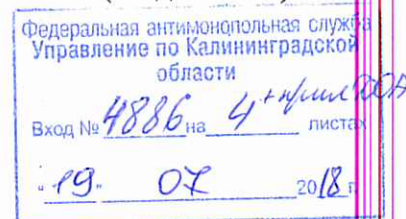 Федеральная антимонопольная служба
Управление по Калининградской
области
Вход № 4886 на 4 + прил листах
"19" 07 2018 г